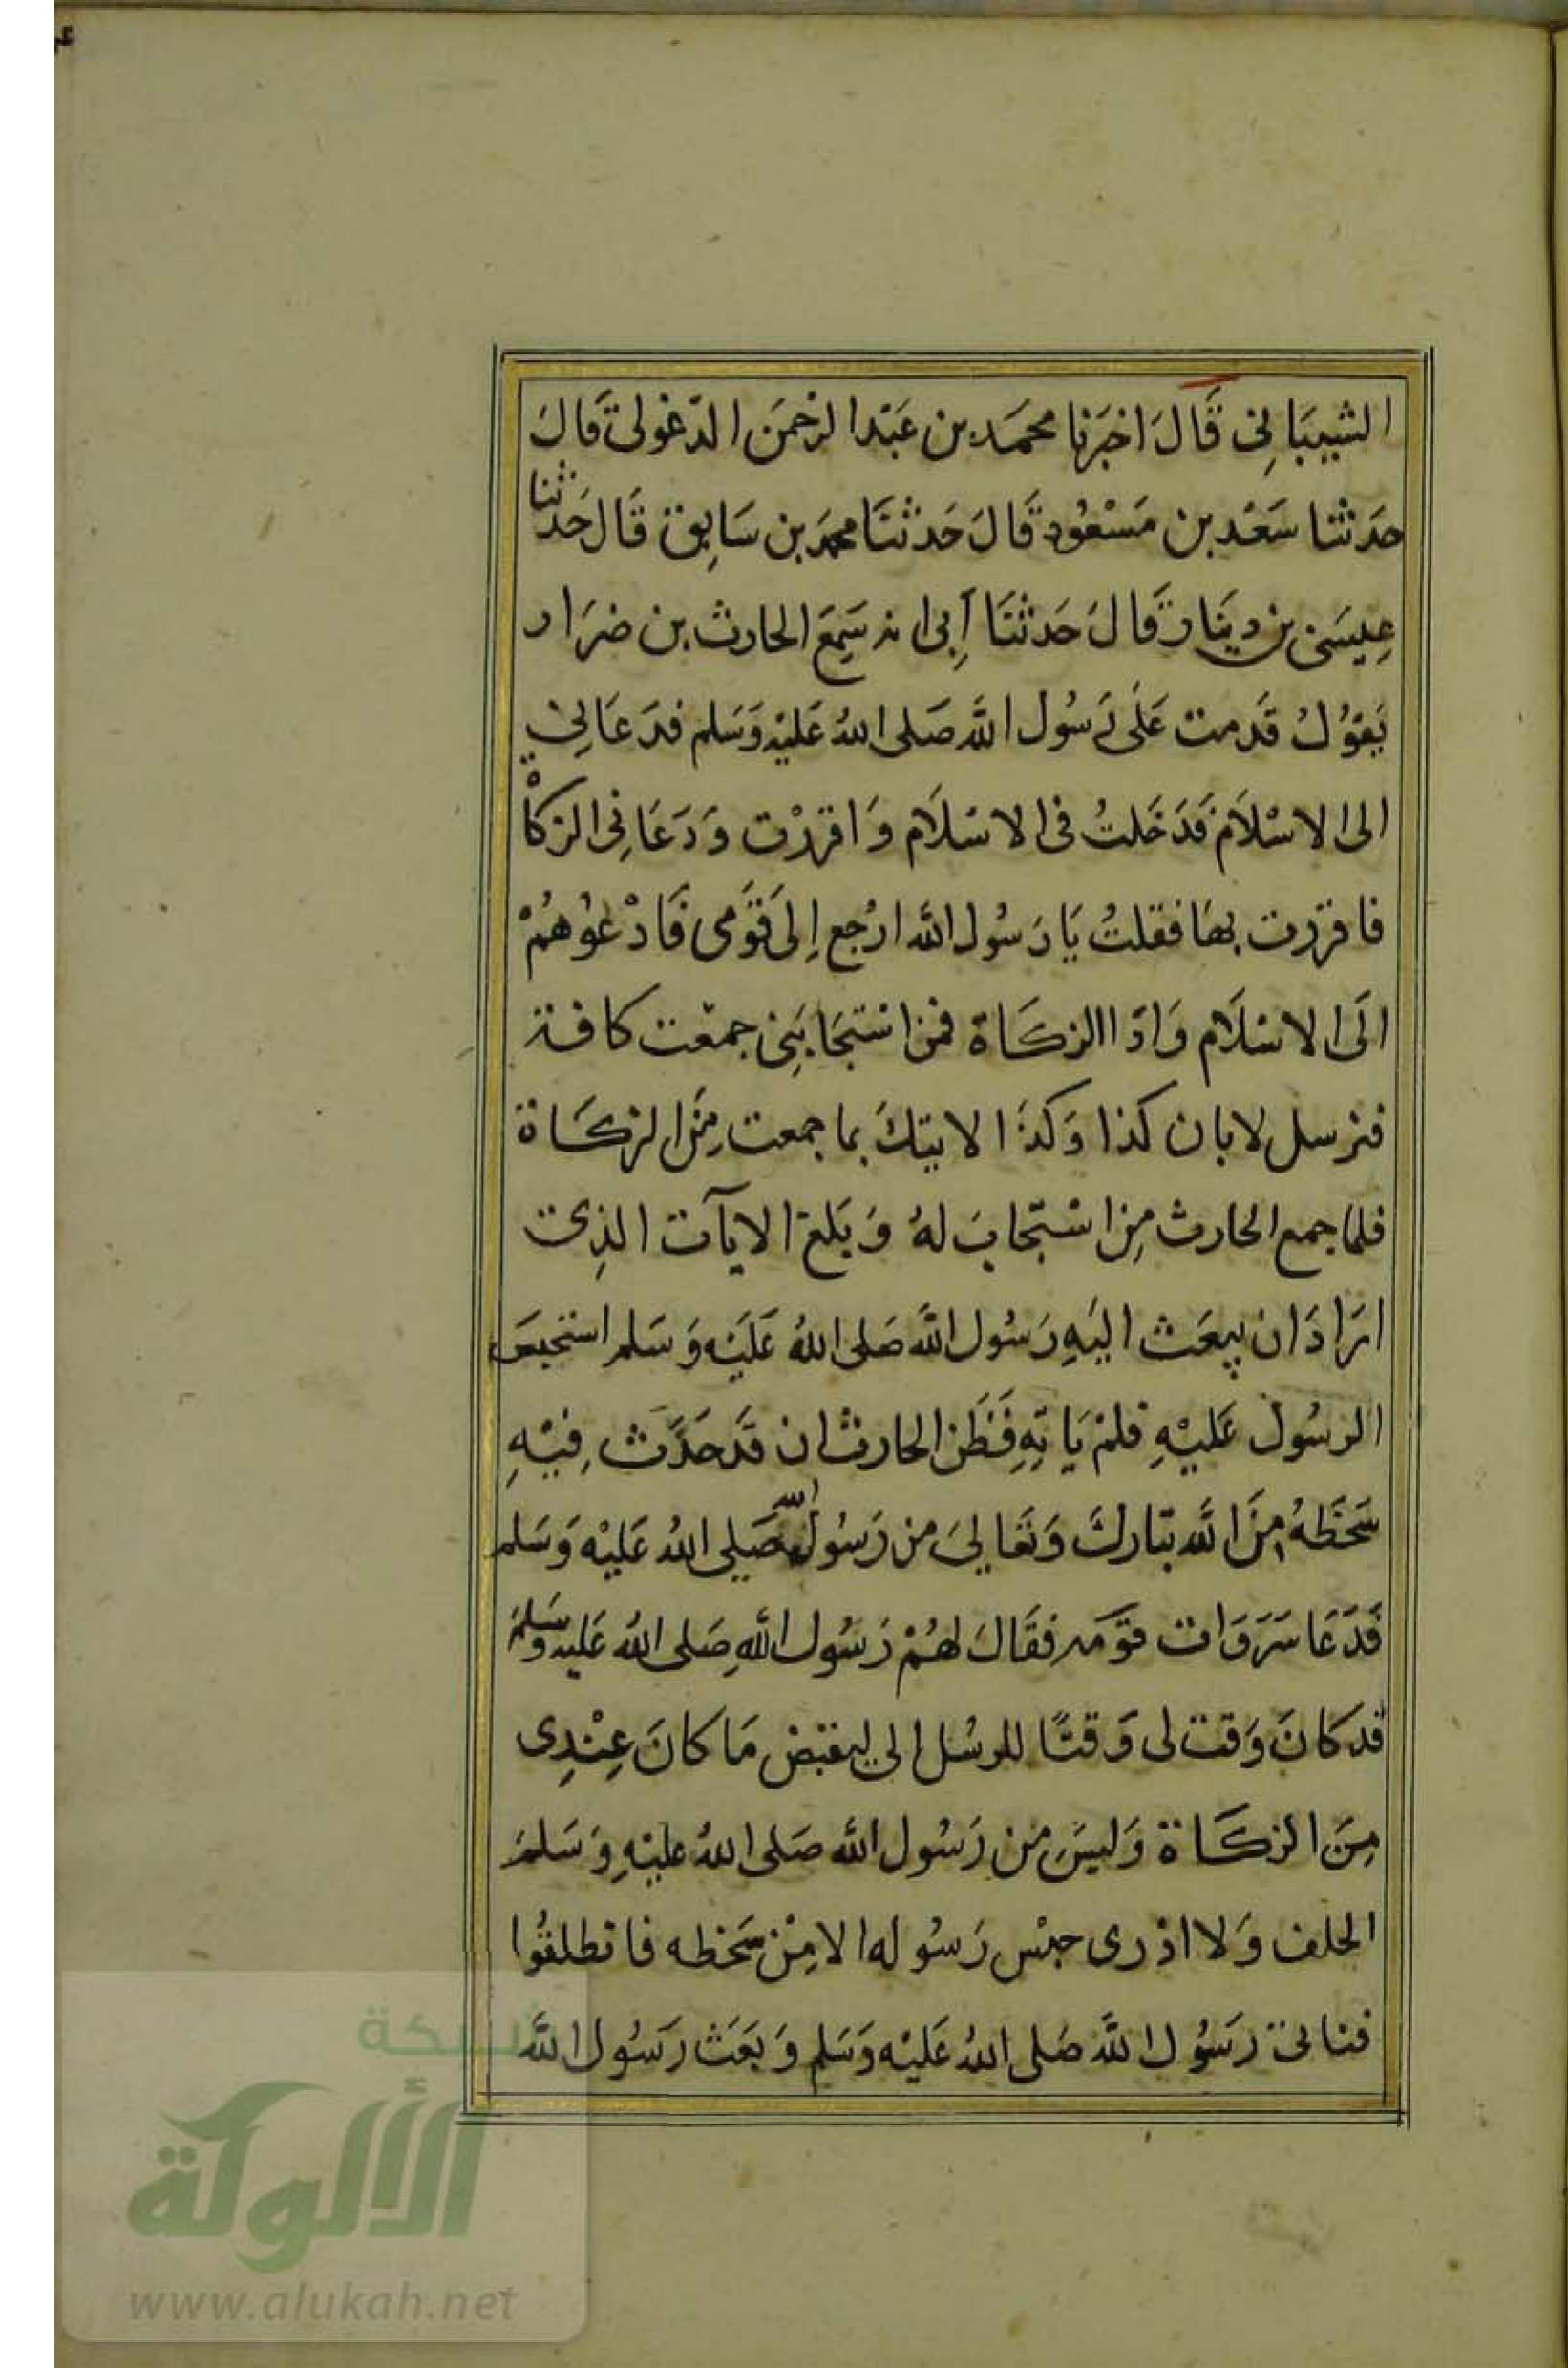 الشيبَانِي قَالَ اخبَرنا محمَد بن عَبْدا لرحمَن الدّغولى قَالَ
حَدثنا سَعْد بن مَسْعُود قَالَ حَدثنَا محمد بن سَابِق قَال حَدثنا
عِيسَى بن دينَار قَالَ حَدثنَا أَبِى انه سَمِعَ الحارث بن ضرَار
يَقوُلُ قدَمت عَلَى رَسُول اللَّه صَلى اللهُ عَليْه وَسَلم فدَعَانِي
الى الاسْلَام فَدَخَلتُ فى الاسْلَام وَاقررْت وَدَعَانِى الزكاْة
فاقررت بهَا فقلتُ يَا رَسُول الله ارْجع اِلَى قَوَمى فَادْعُوهُمْ
الَى الاسْلَام وَادَا الزكَاة فمن استجَابَنِى جمعْت كافة
فنرسل لابان كذا وَكذَا لاتيتكَ بما جمعت مِنَ الزكَاة
فلما جمع الحارث مِن اسْتجابَ لهُ وَبَلغ الايآت الذِى
ارَادَ ان يبعَث اليَهِ رَسُول اللَّه صَلى اللهُ عَلَيْه وَسَلم استحبسَ
الرسُول عَليْهِ فلمْ يَاتِهِ فَظَن الحارث ان قَد حَدَث فِيْهِ
سَخَطَهُ مِنَ اللَّه تبَارك وَتعَالىَ من رَسُول الله صَلي اللهُ عَليْه وَسَلم
فَدَعَا سَرَوَات قوَمه فقَالَ لهُمْ رَسُول اللَّهِ صَلى اللهُ عَليه وسَلمَ
قد كانَ وَقت لى وَقتًا للرسُل الى ليقبض مَا كانَ عِنْدِى
مِنَ الزكَاة وَليسَ من رَسُول الله صَلى اللهُ عليْهِ وَسَلمَ
الخلف وَلا ادْرى حبْس رَسُوله الا مِنْ سَخطه فانطلقُوا
فناتى رَسُول اللَّه صَلى اللهُ عَليْه وَسَلم وَبَعَث رَسُول اللَّه
شبكة
الألوكة
www.alukah.net